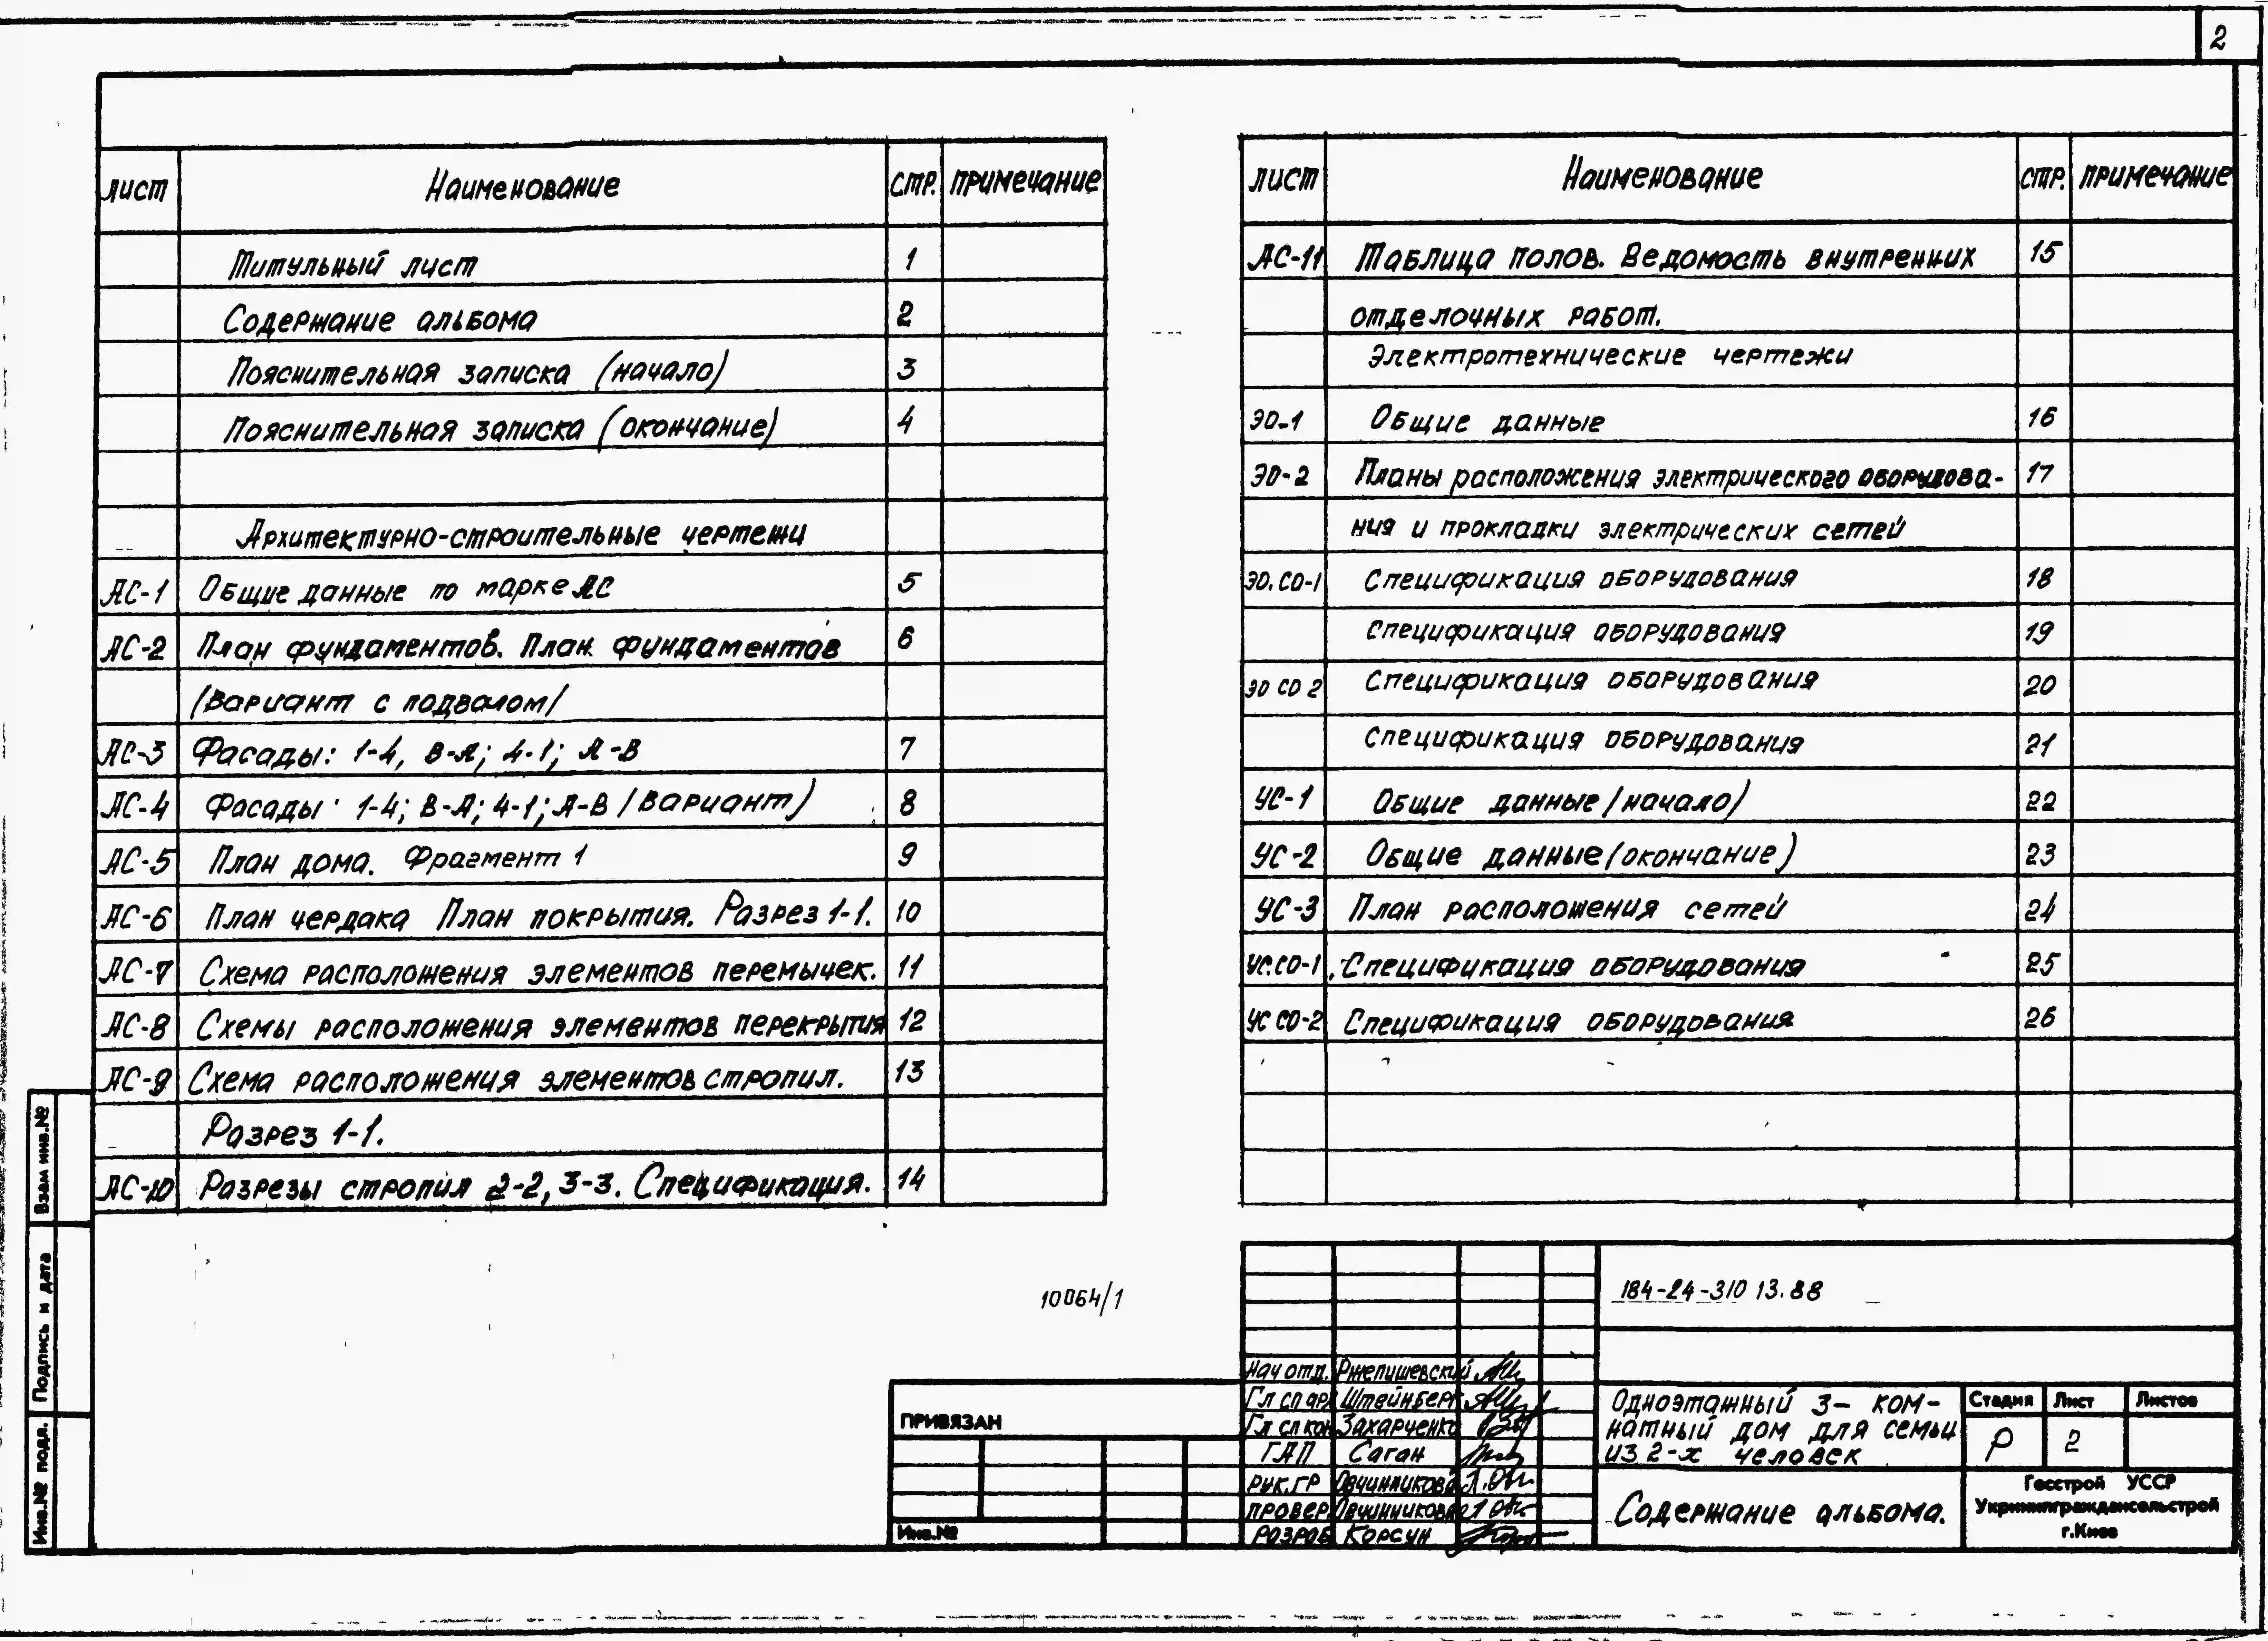 2
лист Наименование стр. примечание
Титульный лист 1
Содержание альбома 2
Пояснительная записка (начало) 3
Пояснительная записка (окончание) 4
Архитектурно-строительные чертежи
АС-1 Общие данные по марке АС 5
АС-2 План фундаментов. План фундаментов 6
/вариант с подвалом/
АС-3 Фасады: 1-4, В-А; 4-1; А-В 7
АС-4 Фасады 1-4; В-А; 4-1; А-В /вариант) 8
АС-5 План дома. Фрагмент 1 9
АС-6 План чердака План покрытия. Разрез 1-1. 10
АС-7 Схема расположения элементов перемычек. 11
АС-8 Схемы расположения элементов перекрытия 12
АС-9 Схема расположения элементов стропил. 13
Разрез 1-1.
АС-10 Разрезы стропил 2-2, 3-3. Спецификация. 14
лист Наименование стр. примечание
АС-11 Таблица полов. Ведомость внутренних 15
отделочных работ.
Электротехнические чертежи
ЭО-1 Общие данные 16
ЭО-2 Планы расположения электрического оборудова- 17
ния и прокладки электрических сетей
ЭО.СО-1 Спецификация оборудования 18
Спецификация оборудования 19
ЭО СО 2 Спецификация оборудования 20
Спецификация оборудования 21
УС-1 Общие данные /начало) 22
УС-2 Общие данные (окончание) 23
УС-3 План расположения сетей 24
УС.СО-1 Спецификация оборудования 25
УС СО-2 Спецификация оборудования 26
Взам инв.№
Подпись и дата
Инв.№ подл.
10064/1
ПРИВЯЗАН
Инв.№
184-24-310 13.88
Нач отд. Ржепишевский
Гл сп арх Штейнберг
Гл сп кон Захарченко
ГАП Саган
Рук.гр Овчинникова
Провер Овчинникова
Разраб Корсун
Одноэтажный 3- ком-
натный дом для семьи
из 2-х человек
Стадия Лист Листов
Р 2
Содержание альбома.
Госстрой УССР
Укрниипграждансельстрой
г.Киев